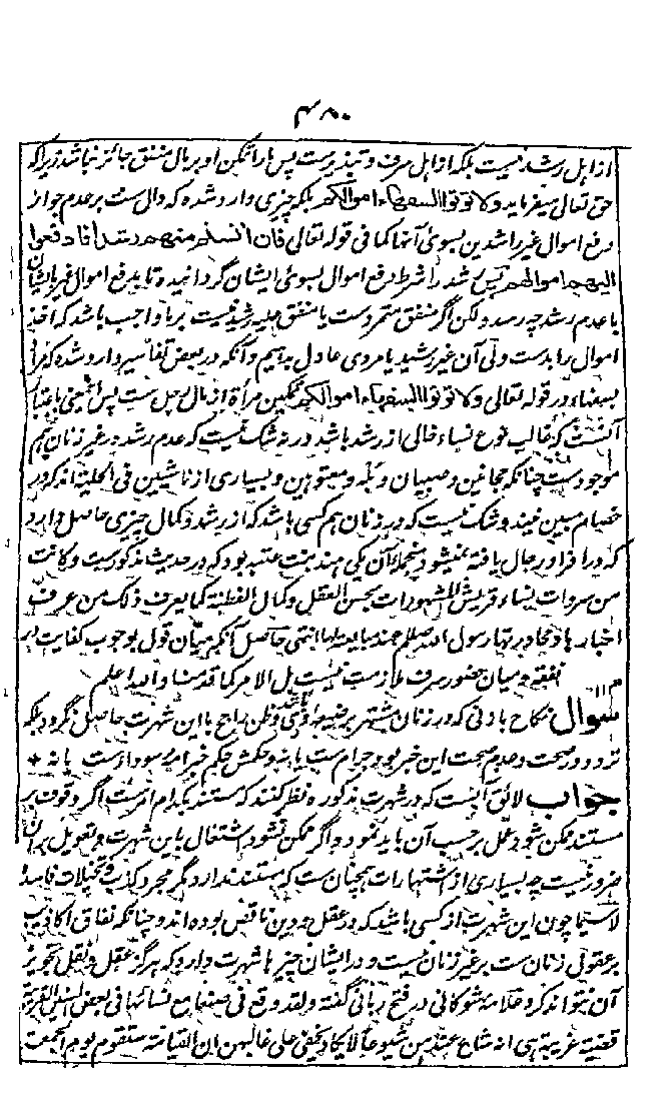 ۴۸۰
از اهل رشد نیست بلکه از اهل سرف و تبذیر ست پس بار تمکن او بر مال منفق جائز نباشد زیراکه
حق تعالی میفرماید ولا توتوا السفهاء اموالکم بلکه چیزی وارد شده که دال ست بر عدم جواز
دفع اموال غیر راشدین بسوئ آنها کما فی قوله تعالی فان انستم منهم رشدا فادفعوا
الیهم اموالهم پس رشد را شرط دفع اموال بسوئ ایشان گردانیده تا بدفع اموال غیر بایشان
با عدم رشد چه رسد ولکن اگر منفق متمرد ست یا منفق علیه رشید نیست بر ما واجب باشد که اخذ
اموال را بدست ولی آن غیر رشید یا مردی عادل بدهیم و آنکه در بعض تفاسیر وارد شده که مراد
بسفهاء در قوله تعالی ولا توتوا السفهاء اموالکم تمکین مرأة از مال رجل ست پس اینمعنی باعتبار
آنست که غالب نوع نساء خالی از رشد باشد ورنه شک نیست که عدم رشد در غیر زنان هم
موجود ست چنانکه مجانین و صبیان و بله و معتوهین و بسیاری از ناشئین فی الحلیة اند که در
خصام مبین نیند و شک نیست که در زنان هم کسی باشد که از رشد و کمال چیزی حاصل دارد
که در افراد رجال یافته نمیشود و منجمله آن یکی هند بنت عتبه بود که در حدیث مذکور ست وکانت
من سروات نساء قریش المشهورات بحسن العقل وکمال الفطنة کما یعرف ذلک من عرف
اخبارها ومحاورتها رسول الله صلعم عند مبایعته لها انتهی حاصل آنکه میان قول بوجوب کفایت در
نفقه و میان حضور سرف ملازمت نیست بل الامر کما قدمنا والله اعلم
سوال نکاح با زنی که در زنان مشتهر برضیعه او ست و ظن راجح با این شهرت حاصل نگردد بلکه
تردد در صحت و عدم صحت این خبر بود حرام ست یا نه و حکمش حکم خبر امة سودا ست یا نه +
جواب لائق آنست که در شهرت مذکوره نظر کنند که مستند بکدام امر ست اگر وقوف بر
مستند ممکن شود عمل بر حسب آن باید نمود و اگر ممکن نشود اشتغال باین شهرت و تعویل بران
ضرور نیست چه بسیاری از اشتهارات همچنان ست که مستند ندارد مگر مجرد کذب و تخیلات فاسده
لاسیما چون این شهرت از کسی باشد که در عقل و دین ناقص بوده اند و چنانکه نفاق اکاذیب
بر عقول زنان ست بر غیر زنان نیست و در ایشان چیزها شهرت دارد که هرگز عقل و نقل تجویز
آن نتواند کرد علامه شوکانی در فتح ربانی گفته ولقد وقع فی صنعا مع نسائها فی بعض السنین القریبة
قضیة غریبة هی انه شاع عندهن شیوعا لا یکاد یخفی علی غالبهن ان القیامة ستقوم یوم الجمعة